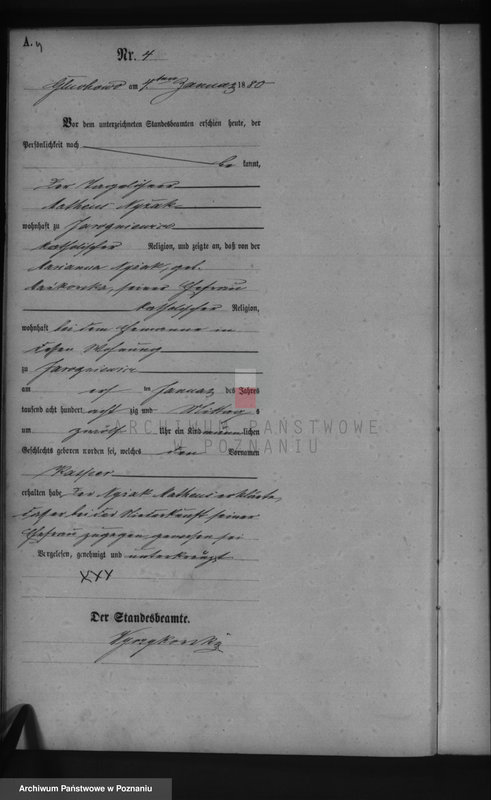 A.
Nr. 4
Gluchowo am 4ten Januar 1880
Vor dem unterzeichneten Standesbeamten erschien heute, der
Persönlichkeit nach
be kannt,
der Tagelöhner
Matheus
wohnhaft zu Jarogniewice
katholischer Religion, und zeigte an, daß von der
Marianna geb.
seiner Ehefrau
katholischer Religion,
wohnhaft bei dem Ehemanne in
dessen Wohnung
zu Jarogniewice
am ten Januar des Jahres
tausend acht hundert acht zig und Mittag s
um zwölf Uhr ein Kind männlichen
Geschlechts geboren worden sei, welches den Vornamen
Kasper
erhalten habe. Der Matheus erklärte,
daß er bei der Niederkunft seiner
Ehefrau zugegen gewesen sei
Vorgelesen, genehmigt und unterkreuzt
XXX
Der Standesbeamte.
ARCHIWUM PAŃSTWOWE
W POZNANIU
Archiwum Państwowe w Poznaniu